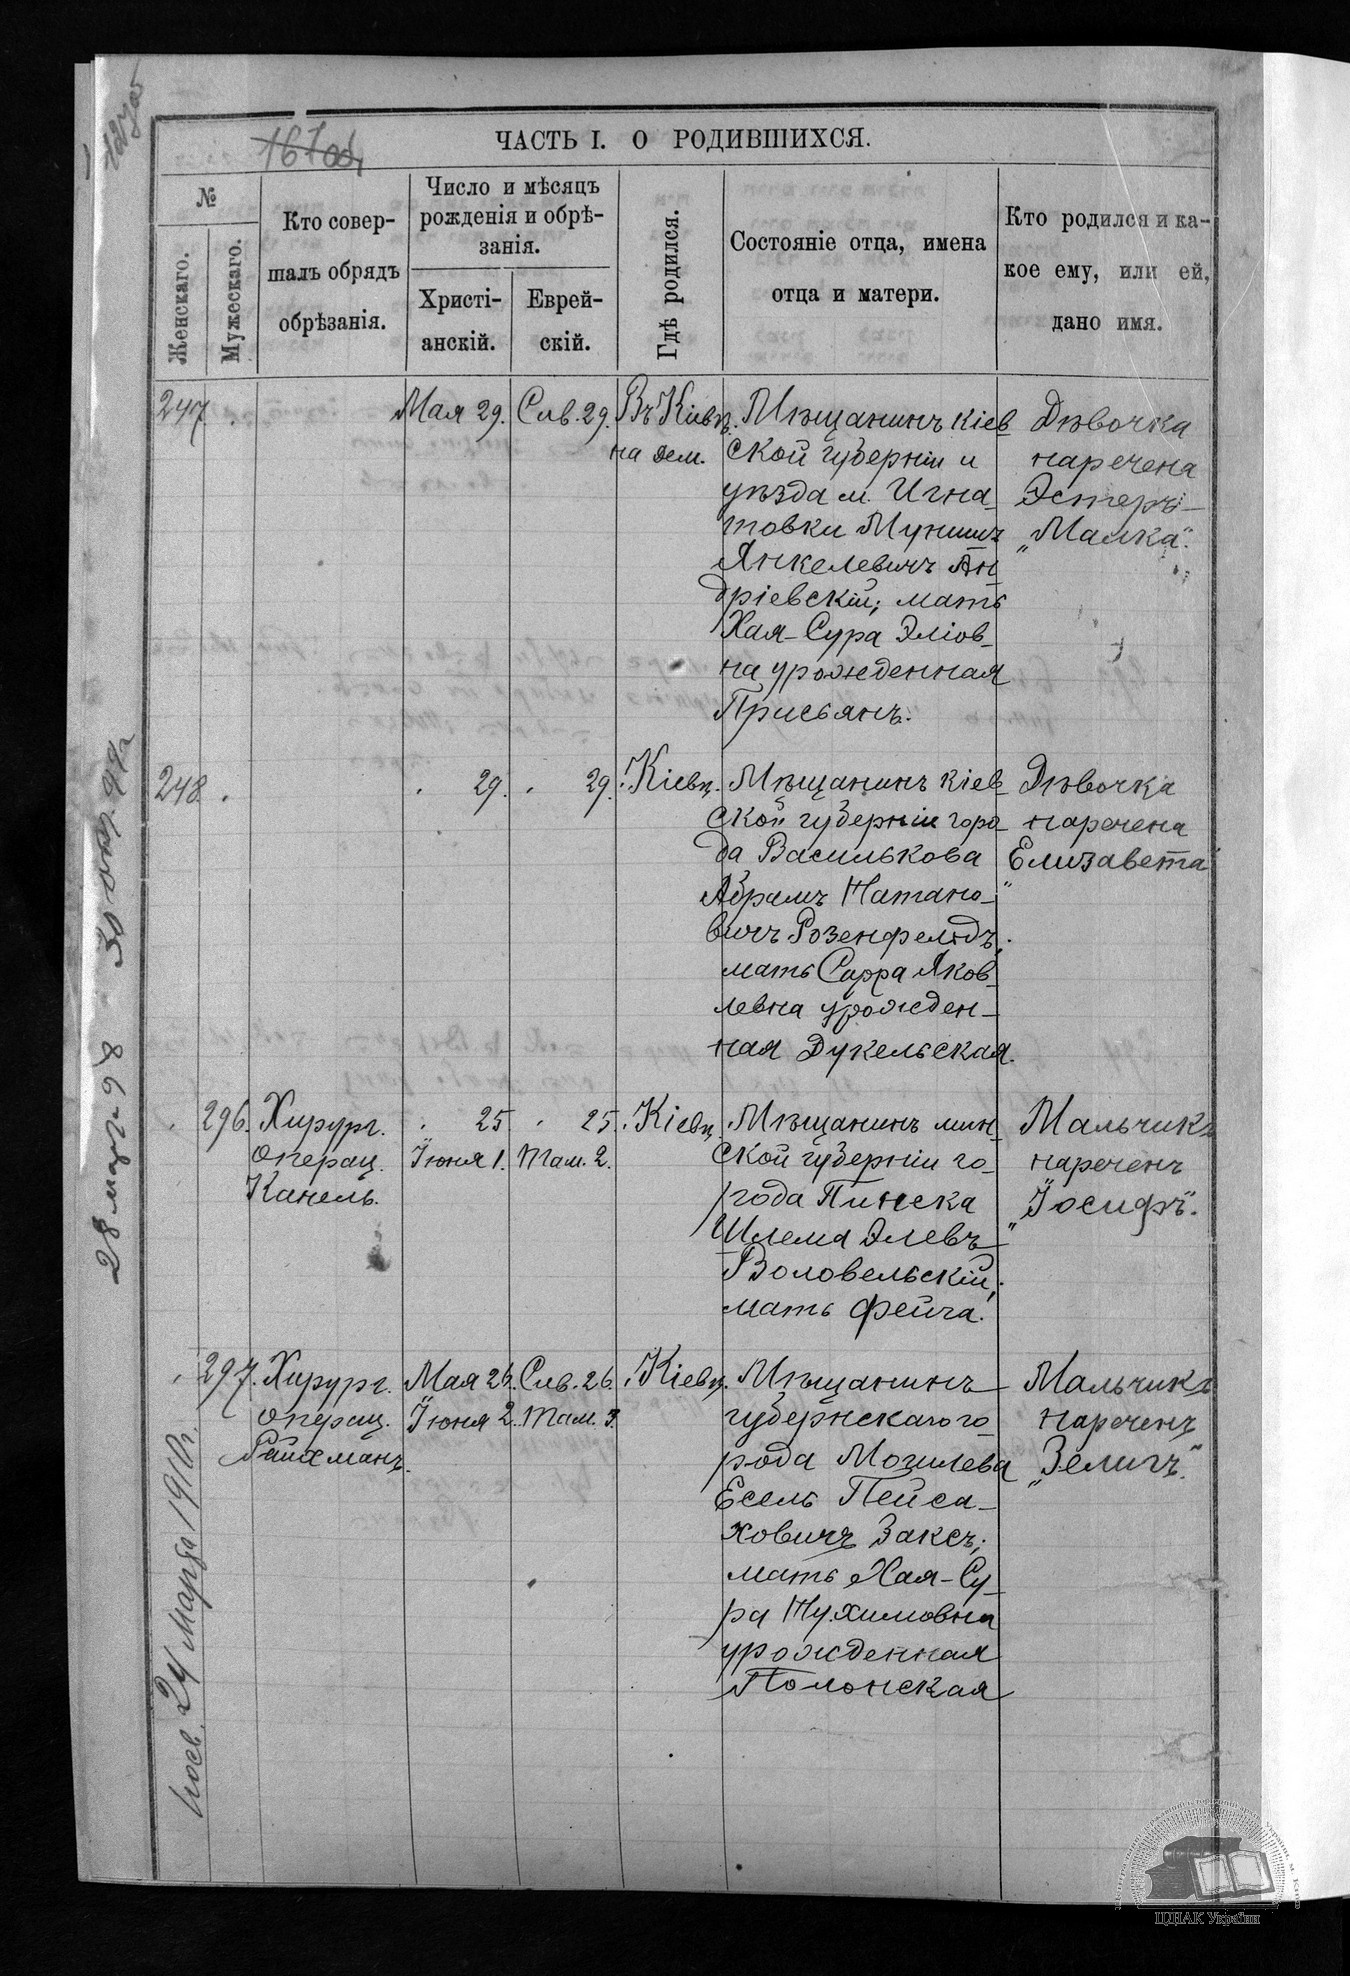 167 об,
ЧАСТЬ I. О РОДИВШИХСЯ.
№
Женскаго.
Мужескаго.
Кто совер-
шалъ обрядъ
обрѣзанія.
Число и мѣсяцъ
рожденія и обрѣ-
занія.
Христі-
анскій.
Еврей-
скій.
Гдѣ родился.
Состояніе отца, имена
отца и матери.
Кто родился и ка-
кое ему, или ей,
дано имя.
247.
Мая 29.
Сив. 29.
Въ Кіевѣ.
на дем.
Мѣщанинъ кіев
ской губерніи и
уѣзда м. Игна-
товки Мунишъ
Янкелевичъ Ан
дріевскій; мать
Хая-Сура Эліов-
на урожденная
Присьянъ.
Дѣвочка
наречена
Эстеръ-
„Малка".
248.
29.
29.
Кіевѣ.
Мѣщанинъ кіев-
ской губерніи горо-
да Василькова
Абрамъ Натано-
вичъ Розенфельдъ;
мать Сарра Яков-
левна урожден-
ная Дукельская.
Дѣвочка
наречена
„Елизавета"
296.
Хирург.
операц.
Канель.
25
Іюня 1.
25
Там. 2.
Кіевѣ.
Мѣщанинъ мин-
ской губерніи го-
рода Пинска
Шлема Элевъ-
Воловельскій;
мать Фейга.
Мальчикъ
нареченъ
„Іосифъ".
297.
Хирург.
операц.
Райхманъ.
Мая 26.
Іюня 2.
Сив. 26.
Там. 3.
Кіевѣ.
Мѣщанинъ
губернскаго го-
рода Могилева
Есель Пейса-
ховичъ Заксъ;
мать Хая-Су-
ра Нухимовна
урожденная
Полонская
Мальчикъ
нареченъ
„Зелигъ".
28 мар. 98
24 Марта 1910г.
ЦДІАК України